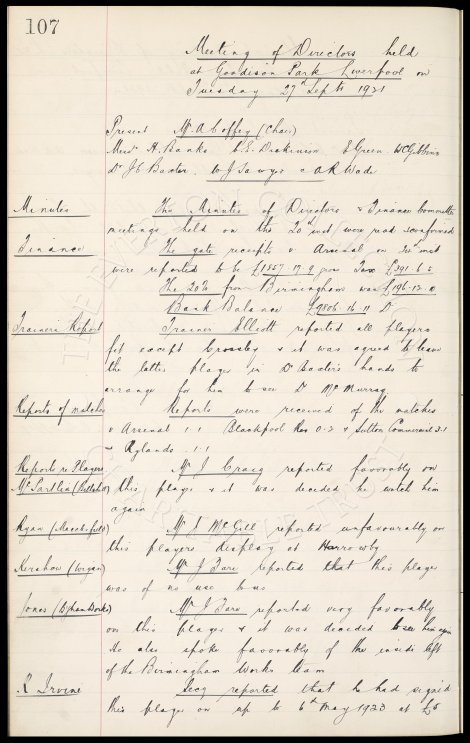 107
Meeting of Directors held
at Goodison Park Liverpool on
Tuesday 27th Septr 1921
Present Mr A Coffey (Chair)
Messrs A. Banks C. E. Dickinson E Green W C Gibbins
Dr J C Baxter W J Sawyer & A R Wade
Minutes The Minutes of Directors & Finance Committee
meetings held on the 20th inst were read & confirmed
Finance The gate receipts v Arsenal on inst
were reported to be £1557.17.9 Tax £391.6.
The 20% from Birmingham was £196.12.0
Bank Balance £9806.16.11 Dr
Trainers Report Trainer Elliott reported all players
fit except Crossley & it was agreed to leave
the latter player in Dr Baxter's hands to
arrange for him to see Dr McMurray
Reports of matches Reports were received of the matches
v Arsenal 1.1 Blackpool Res 0.2 & Sutton Commercial 3.1
Rylands 1.1
Reports re Players Mr J Craig reported favorably on
this player & it was decided he watch him
again
Ryan Mr J McGill reported unfavourably on
this players display at Harrowby
Kershaw (Wigan) Mr J Fare reported that this player
was of no use to us
Jones Mr J Fare reported very favorably
on this player & it was decided to see him again
He also spoke favorably of the inside left
of the Birmingham Works team
R Irvine Secy reported that he had signed
this player on up to 6th May 1923 at £5